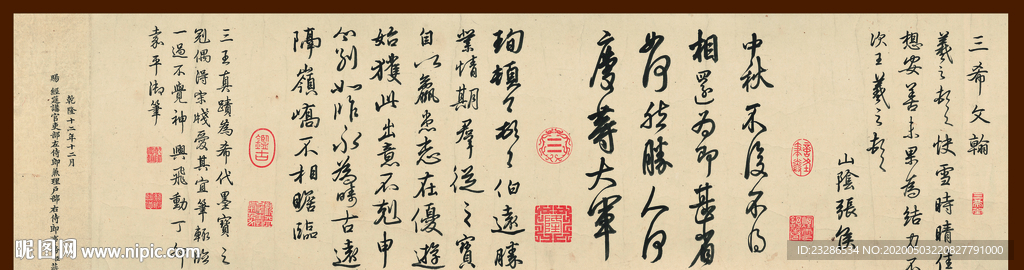 三希文翰
羲之顿首快雪时晴佳
想安善未果為結力不
次王羲之顿首
山陰張侯
中秋不復不得
相還為即甚省
如何然勝人何
慶等大軍
珣頓首頓首伯遠勝
業情期群從之寶
自以羸患志在優遊
始獲此出意不剋申
分別如昨永為疇古遠
隔嶺嶠不相瞻臨
三王真蹟為希代墨寶
冠偶得宗牋愛其宜筆輒臨
一過不覺神興飛動丁
御筆
乾隆十二年十二月
經筵講官吏部左侍郎兼理戶部右侍郎
昵图网
www.nipic.com
ID:23286534 NO:20200503220827791000